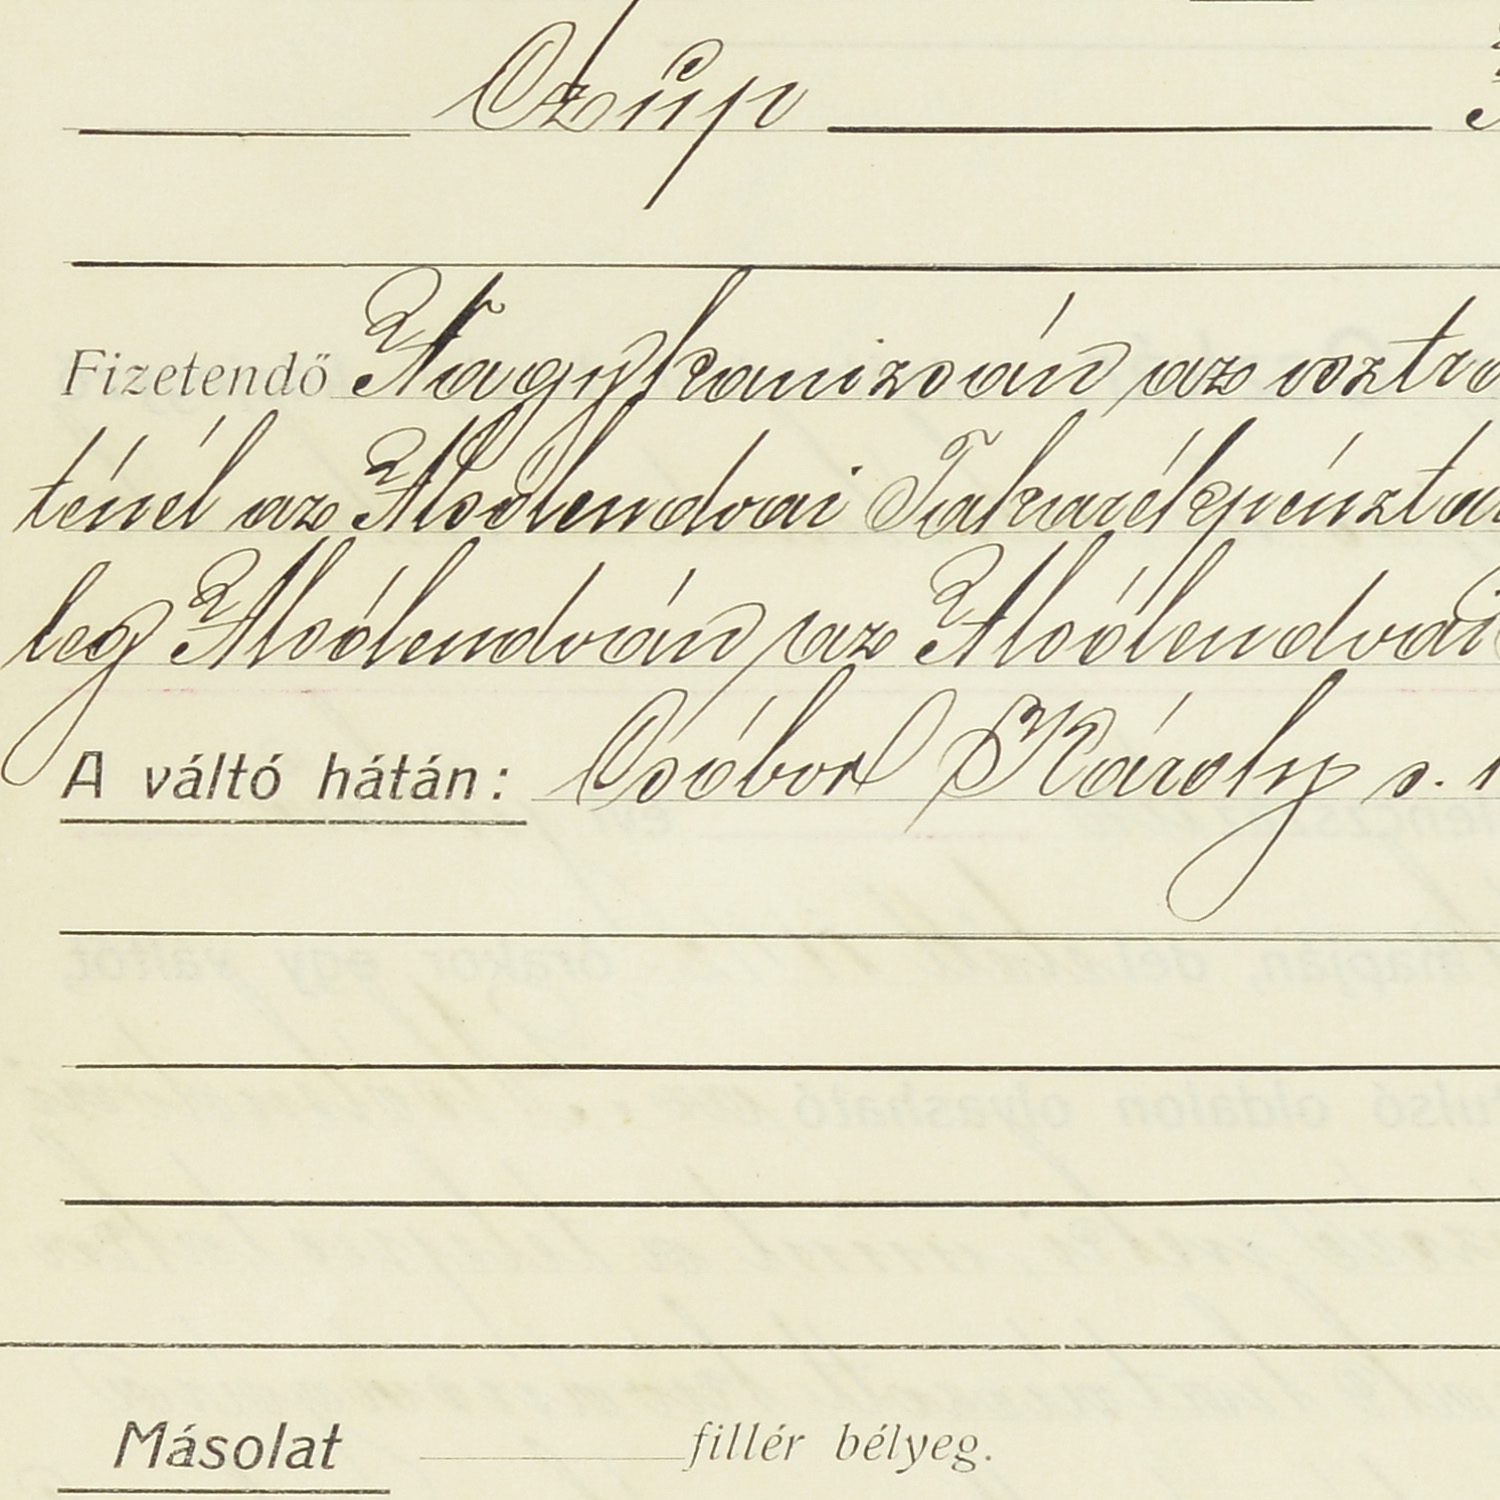 Czúp
Fizetendő Nagykanizsán az osztrá
ténél az Alsólendvai Takarékpénztár
leg Alsólendván az Alsólendvai
A váltó hátán: Csóbor Károly s.
Másolat fillér bélyeg.